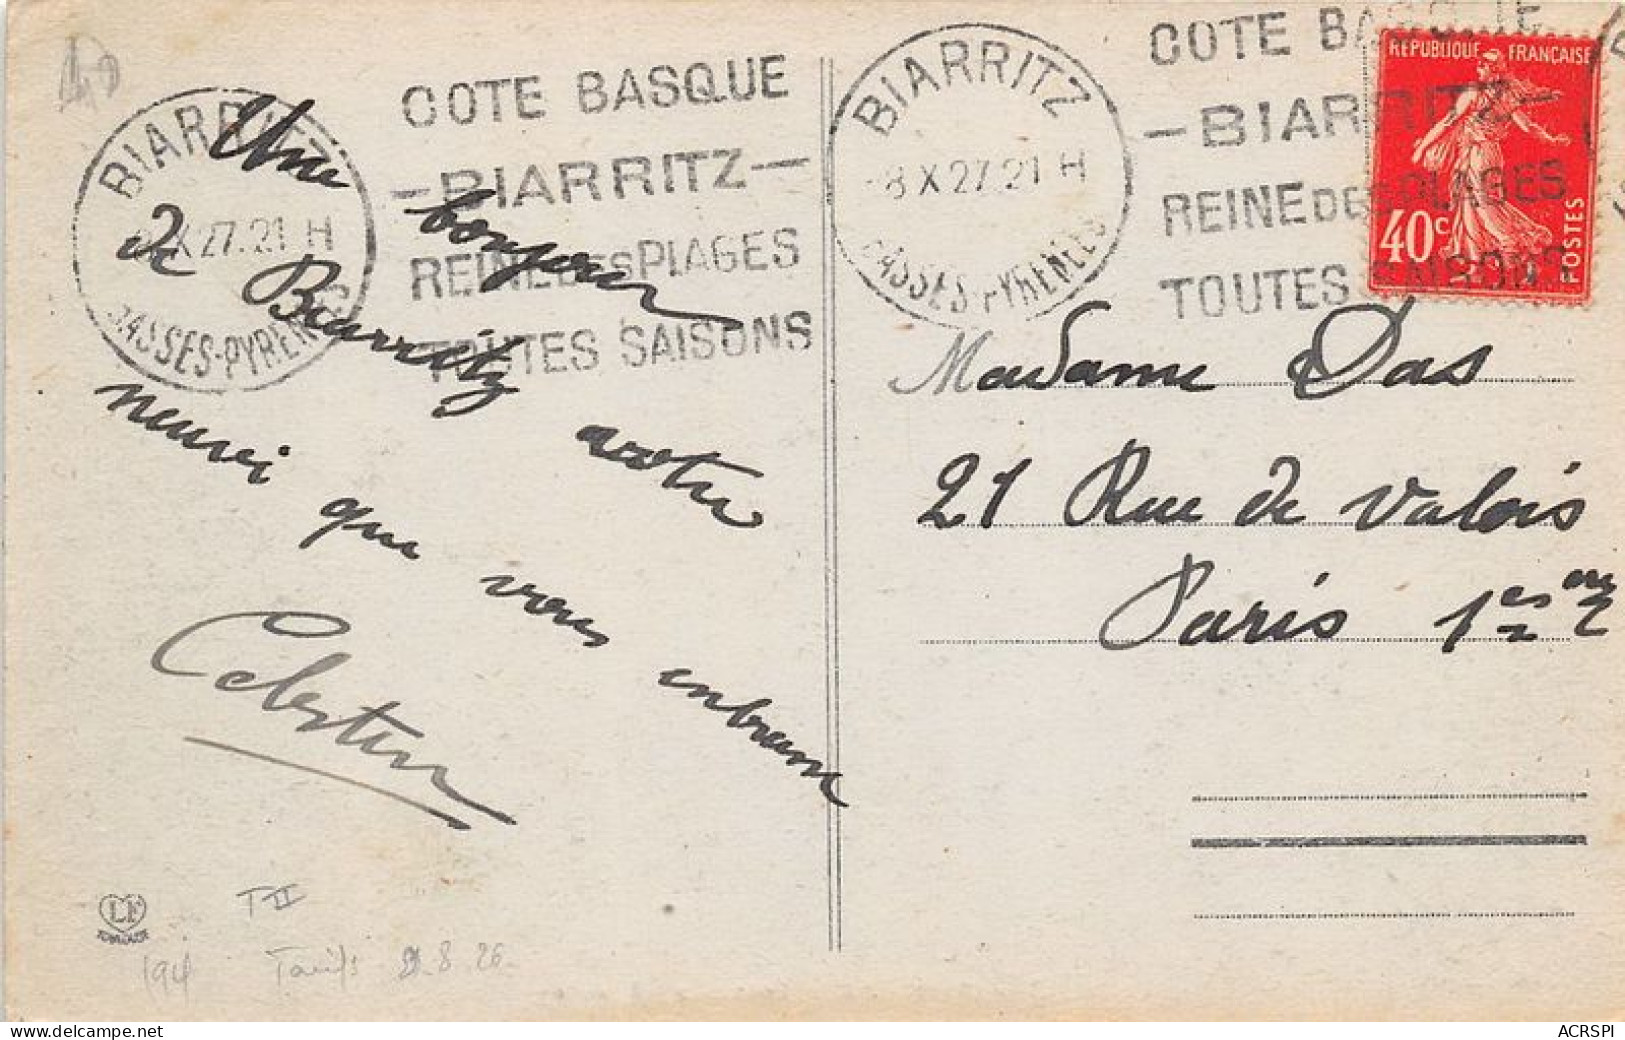 BIARRITZ
8 X 27.21 H
BASSES-PYRENEES
COTE BASQUE
-BIARRITZ-
REINE DES PLAGES
TOUTES SAISONS
BIARRITZ
8 X 27.21 H
BASSES-PYRENEES
COTE BASQUE
-BIARRITZ-
REINE DES PLAGES
TOUTES SAISONS
REPUBLIQUE FRANÇAISE
40c
POSTES
Une bonjour
de Biarritz votre
neuvi que vous embrasse
Celestin
Madame Das
21 Rue de Valois
Paris 1er
LF
TOULOUSE
T II
Tarifs 9.8.26
delcampe.net
ACRSPI